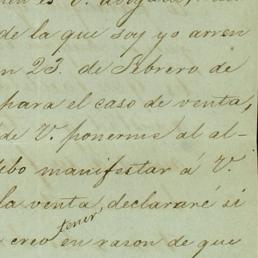 es V. abogado,
de la que soy yo arren
n 23. de Febrero de
para el caso de venta,
de V. ponerme al al-
ebo manifestar á V.
la venta, declararé si
creo tener en rason de que